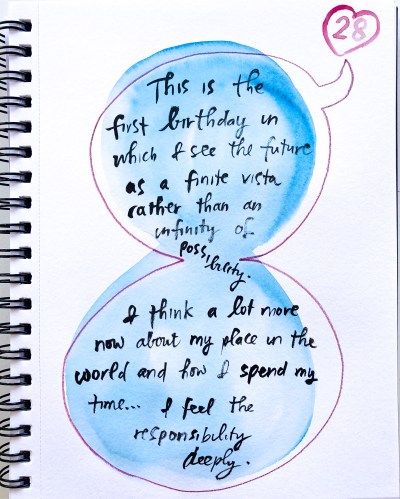 28
This is the
first birthday in
which I see the future
as a finite vista
rather than an
infinity of
possibility.
I think a lot more
now about my place in the
world and how I spend my
time... I feel the
responsibility
deeply.